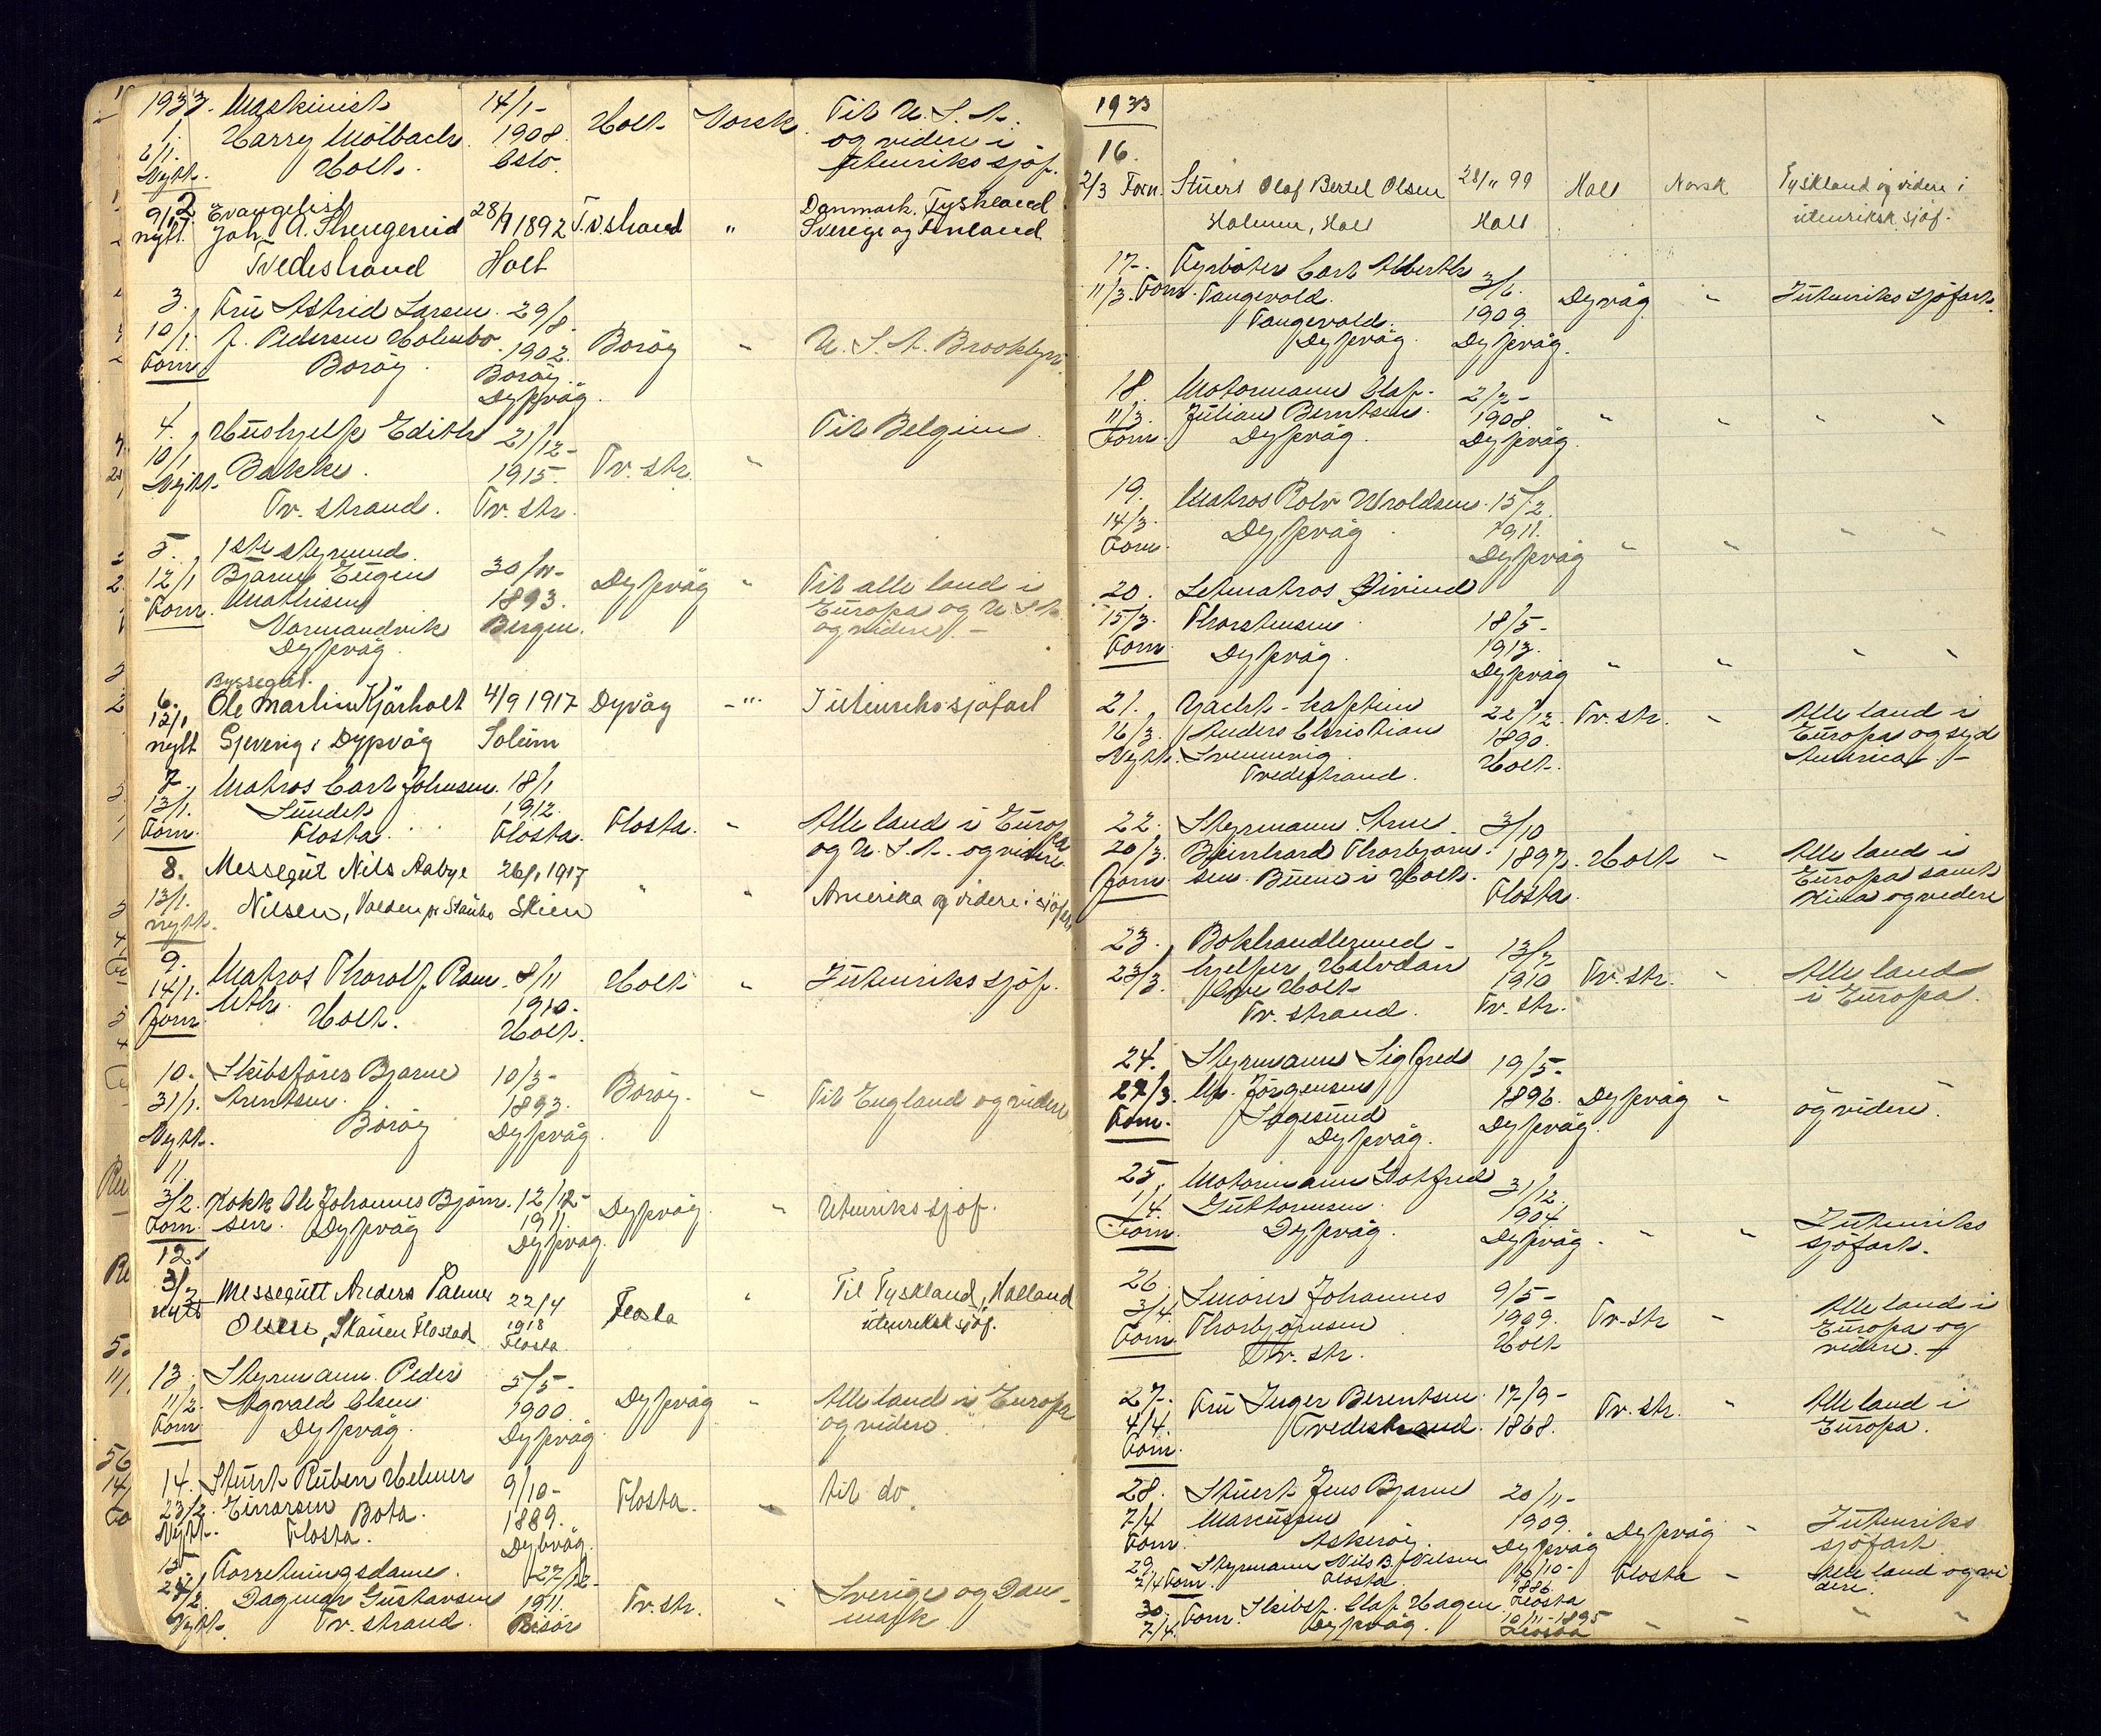 1933. Maskinist 14/1-
1. Harry Mölbach 1908. Holt Norsk Til U. S. A.
6/1. Holt. Oslo. og videre i
Nytt. utenriks sjöf.
2 Evangelist
9/1 Joh. A. Strengereid 28/9 1892 T.v.strand " Danmark. Tyskland
nytt. Tvedestrand Holt Sverige og Finland
3. Fru Astrid Larsen 29/8-
10/1. f. Pedersen Holmsbo 1902. Boröy " U. S. A. Brooklyn.
Forn. Boröy. Boröy.
Dypvåg.
4. Hushjelp Edith 21/12- Til Belgien.
10/1 Bakke. 1915. Tv. str. "
Nytt. Tv. strand. Tv. str.
5. 1ste styrmand
12/1 Bjarne Eugen 30/11- Dypvåg " Til alle land i
Forn. Mathisen 1893. Europa og U. S. A.
Narmandvik Bergen. og videre. -
Dypvåg.
Byssegut.
6. Ole Martin Kjärholt 4/9 1917 Dyvåg - " I utenriks sjöfart
12/1
nytt Gjeving i Dypvåg Solum
7. Matros Carl Johnsen. 18/1
13/1. Sundet 1912.
Forn. Flosta. Flosta. Flosta. " Alle land i Europa
og U. S. A. og videre
8. Messegut Nils Aabye 26/1 1917
13/1. Nilsen, Valden pr Staubo Skien " " Amerika og videre i sjöfart
nytt.
9. Matros Thorolf Ram- 8/11 Holt " I utenriks sjöf.
14/1. leth. 1910.
Forn Holt. Holt.
10. Skibsförer Bjarne 10/3- Boröy. " Til England og videre
31/1. Arentsen. 1893.
Nytt. Boröy Dypvåg.
11.
3/2. Kokk Ole Johannes Björn- 12/12- Dypvåg. " Utenriks sjöf.
Forn. sen. Dypvåg 1911.
Dypvåg.
12.
3/2 Messegutt Anders Palmer 22/4 Flosta " Til Tyskland, Holland
nytt Olsen, Skåtten Flostad 1918 utenriksk sjöf.
Flosta.
13. Styrmann Peder 5/5- Dypvåg " Alle land i Europa
11/2. Agvald Olsen 1900. og videre.
Forn Dypvåg. Dypvåg.
14. Stuert Ruben Helmer 9/10- Flosta. " til do.
23/2. Einarsen Bota. 1889.
Nytt. Flosta. Dypvåg.
15. Forretningsdame. 27/12-
24/2. Dagmar Gustavsen 1911. Tv. str. " Sverige og Dan-
Nytt. Tv. strand. Risör mark.
1933
16.
2/3 Forn. Stuert Olaf Bertel Olsen 28/11 99 Holt Norsk Tyskland og videre i
Holmen, Holt Holt utenriksk. sjöf.
17. Fyrböter Carl Alberth 3/6.
11/3. Forn. Tangevald. 1909. Dypvåg " I utenriks sjöfart.
Tangevold.
Dypvåg. Dypvåg.
18. Motormann Olaf 2/2-
11/3. Julian Berntsen. 1908. " " " "
Forn. Dypvåg. Dypvåg.
19. Matros Rolv Uroldsen. 15/2.
14/3. Dypvåg. 1911. " " " "
Forn. Dypvåg
20. Letmatros Eivind
15/3. Thorstensen. 18/5-
Forn Dypvåg. 1913.
Dypvåg " " " "
21. Yacht-kaptein 22/12. Tv. str. " Alle land i
16/3. Anders Christian 1890. Europa og syd
Nytt. Svennevig. Holt. America. -
Tvedestrand.
22. Styrmann Arne 3/10
20/3. Beinhard Thorbjørn- 1897. Holt " Alle land i
Forn sen. Buene i Holt. Flosta. Europa samt
Kina og videre
23. Bokhandlermed- 13/2
23/3. hjelper Halvdan 1910 Tv. str. " Alle land
Holt Tv. str. i Europa.
Tv. strand.
24. Styrmann Sigfred 19/5-
27/3. M. Jörgensen 1896. Dypvåg " " "
Forn. Sagesund Dypvåg. og videre.
Dypvåg.
25. Motormann Gotfred 31/12.
1/4. Guttormsen. 1904.
Forn Dypvåg. Dypvåg. " " I utenriks
sjöfart.
26. Smörer Johannes 9/5-
3/4. Thorbjörnsen 1909. Tv. str " Alle land i
Forn Tv. str. Holt Europa og
videre. -
27. Fru Inger Berentsen 17/9- Tv. str. " Alle land i
4/4. Tvedestrand. 1868. Europa.
Forn.
28. Stuert Jens Bjarne 20/11-
7/4 Marcussen 1909. Dypvåg " I utenriks
Forn. Askeröy. Dypvåg sjöfart
29. Styrmann Nils B. Nilsen 16/10- Flosta " Alle land og vi
7/4 Forn. Flosta. 1886. dere.
Flosta
30. Forn. Skibsf. Olaf Hagen 10/11-1895 " " " "
7/4. Dypvåg. Flosta